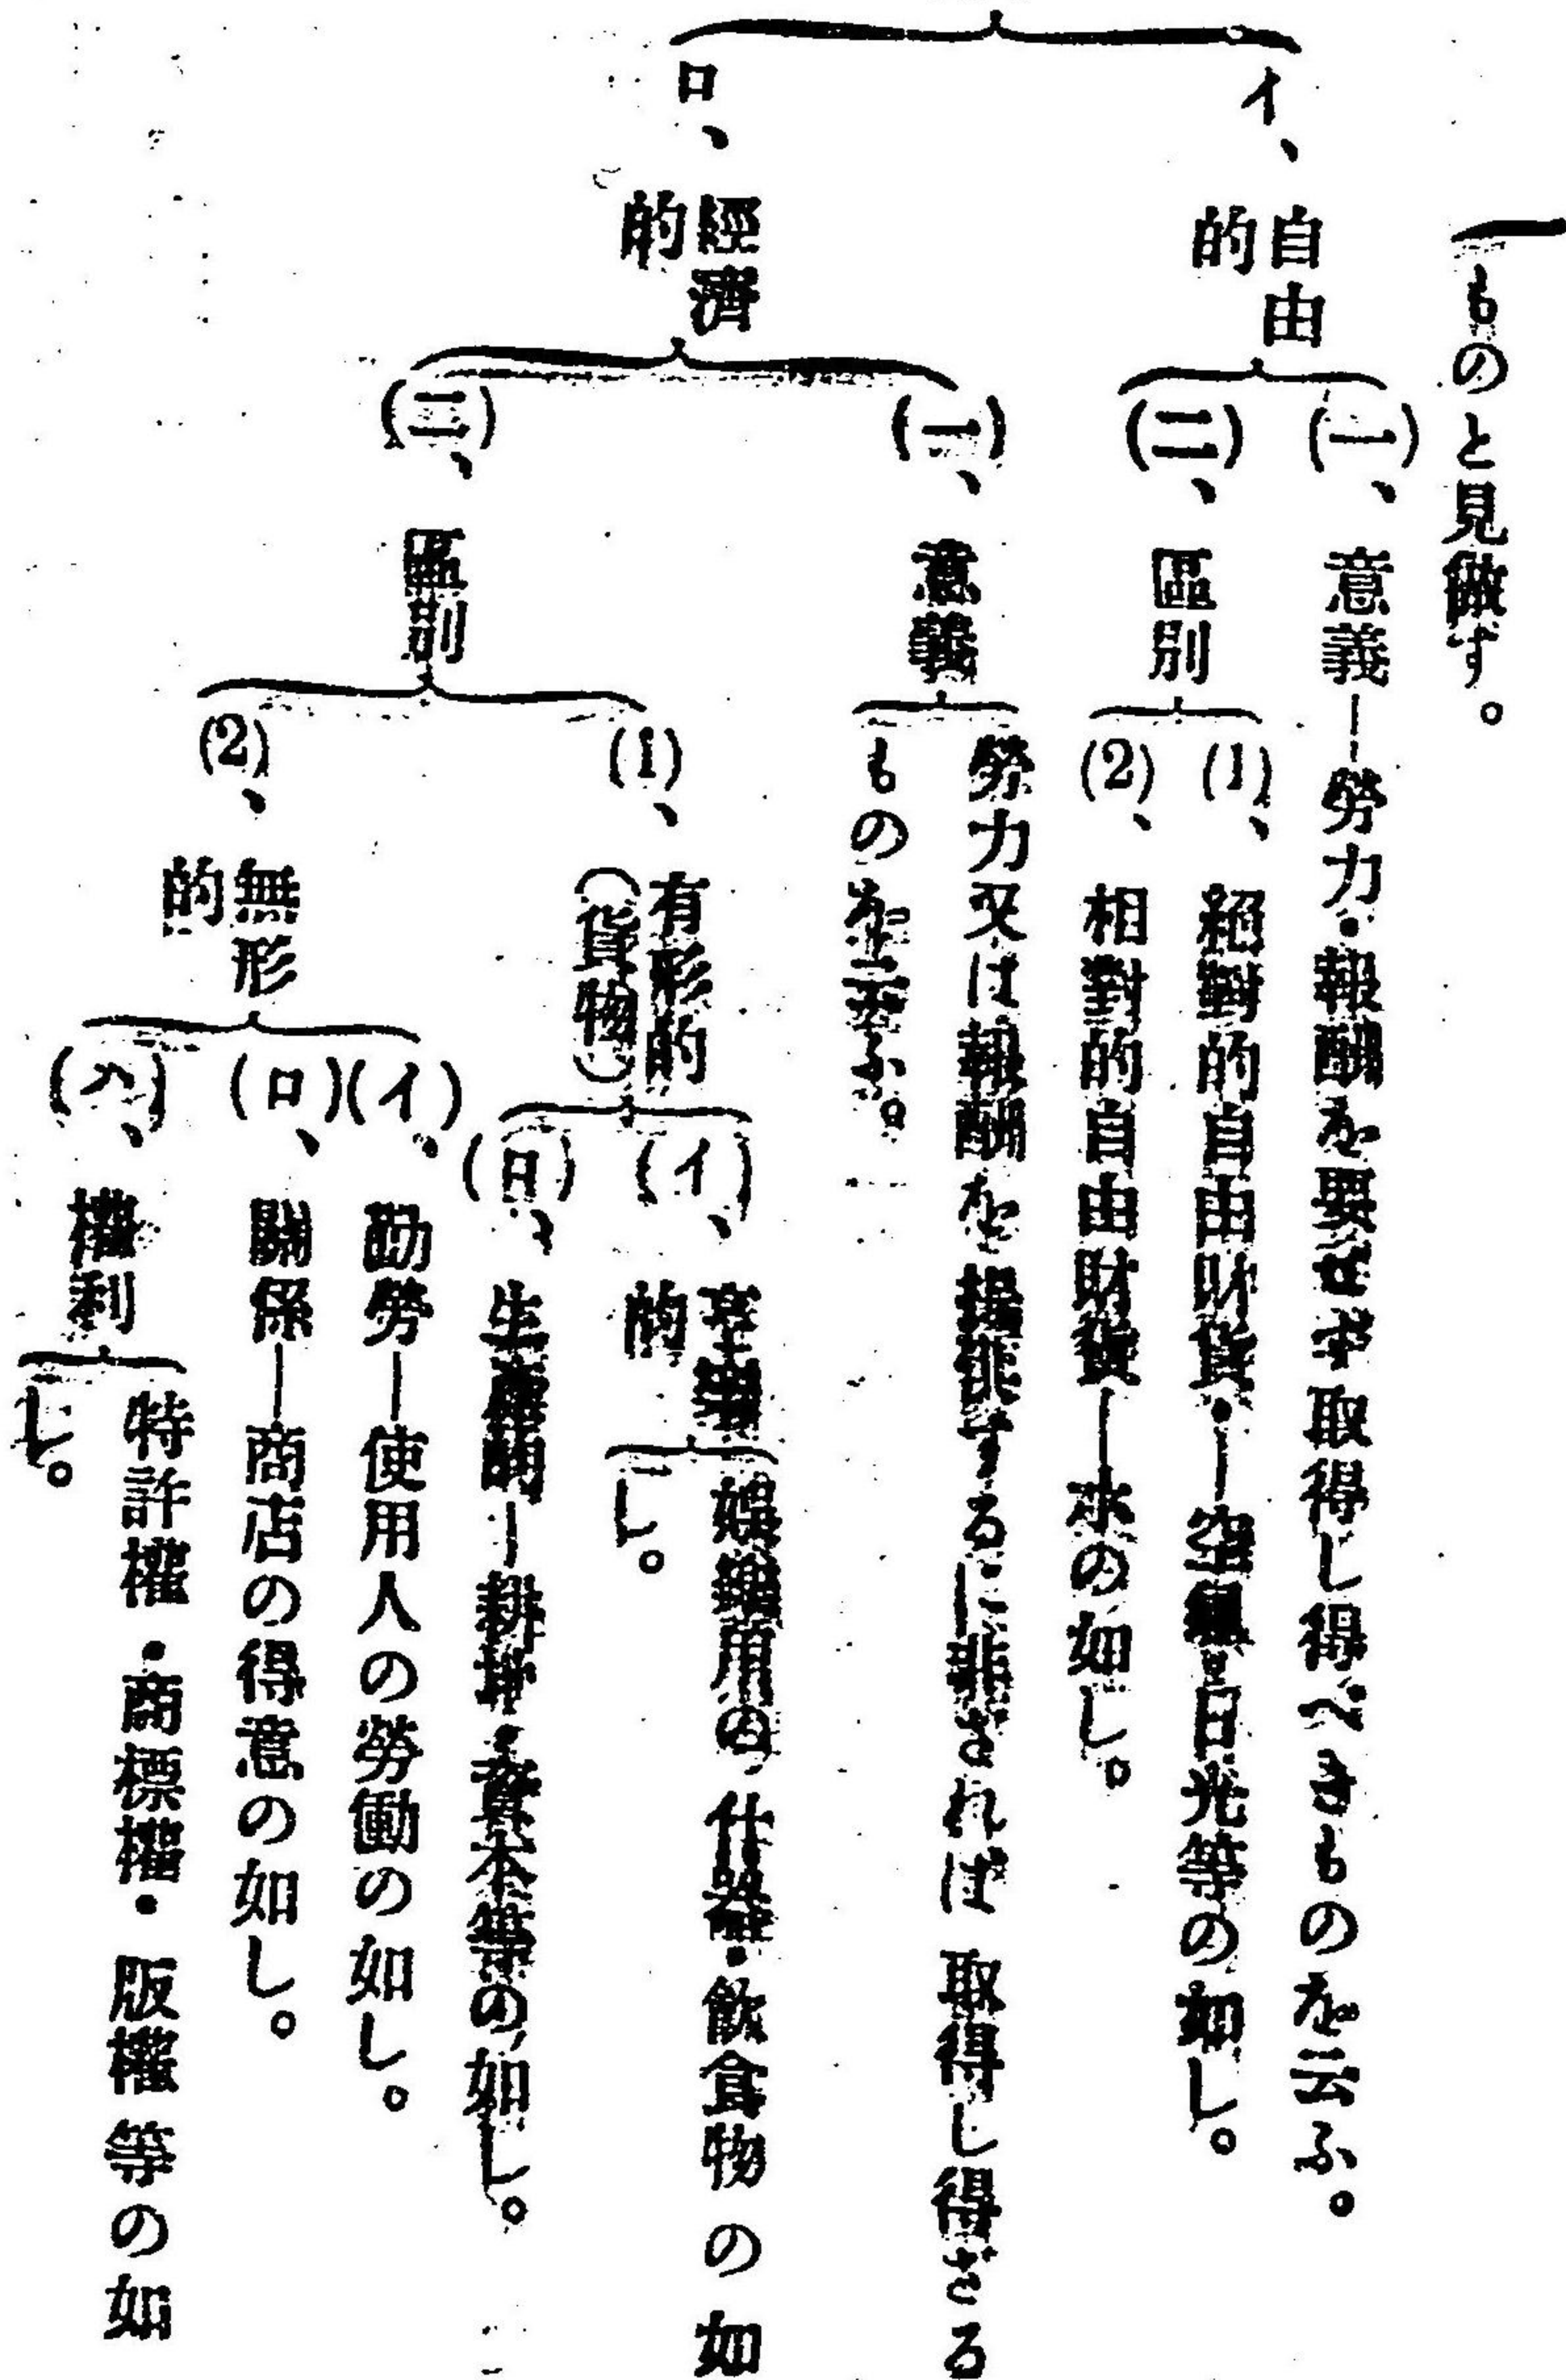 ものと見做す。
イ、自由的
(一)、意義―勞力・報酬を要せず取得し得べきものを云ふ。
(二)、區別
(1)、絕對的自由財貨・―空氣・日光等の如し。
(2)、相對的自由財貨―水の如し。
ロ、經濟的
(一)、意義
勞力又は報酬を提供するに非ざれば取得し得ざる
ものを云ふ。
(二)、區別
(1)、有形的(貨物)
(イ)、享樂的
娛樂用の什器・飮食物の如
し。
(ロ)、生產的―耕地・資本等の如し。
(2)、無形的
(イ)、勤勞―使用人の勞働の如し。
(ロ)、關係―商店の得意の如し。
(ハ)、權利
特許權・商標權・版權等の如
し。